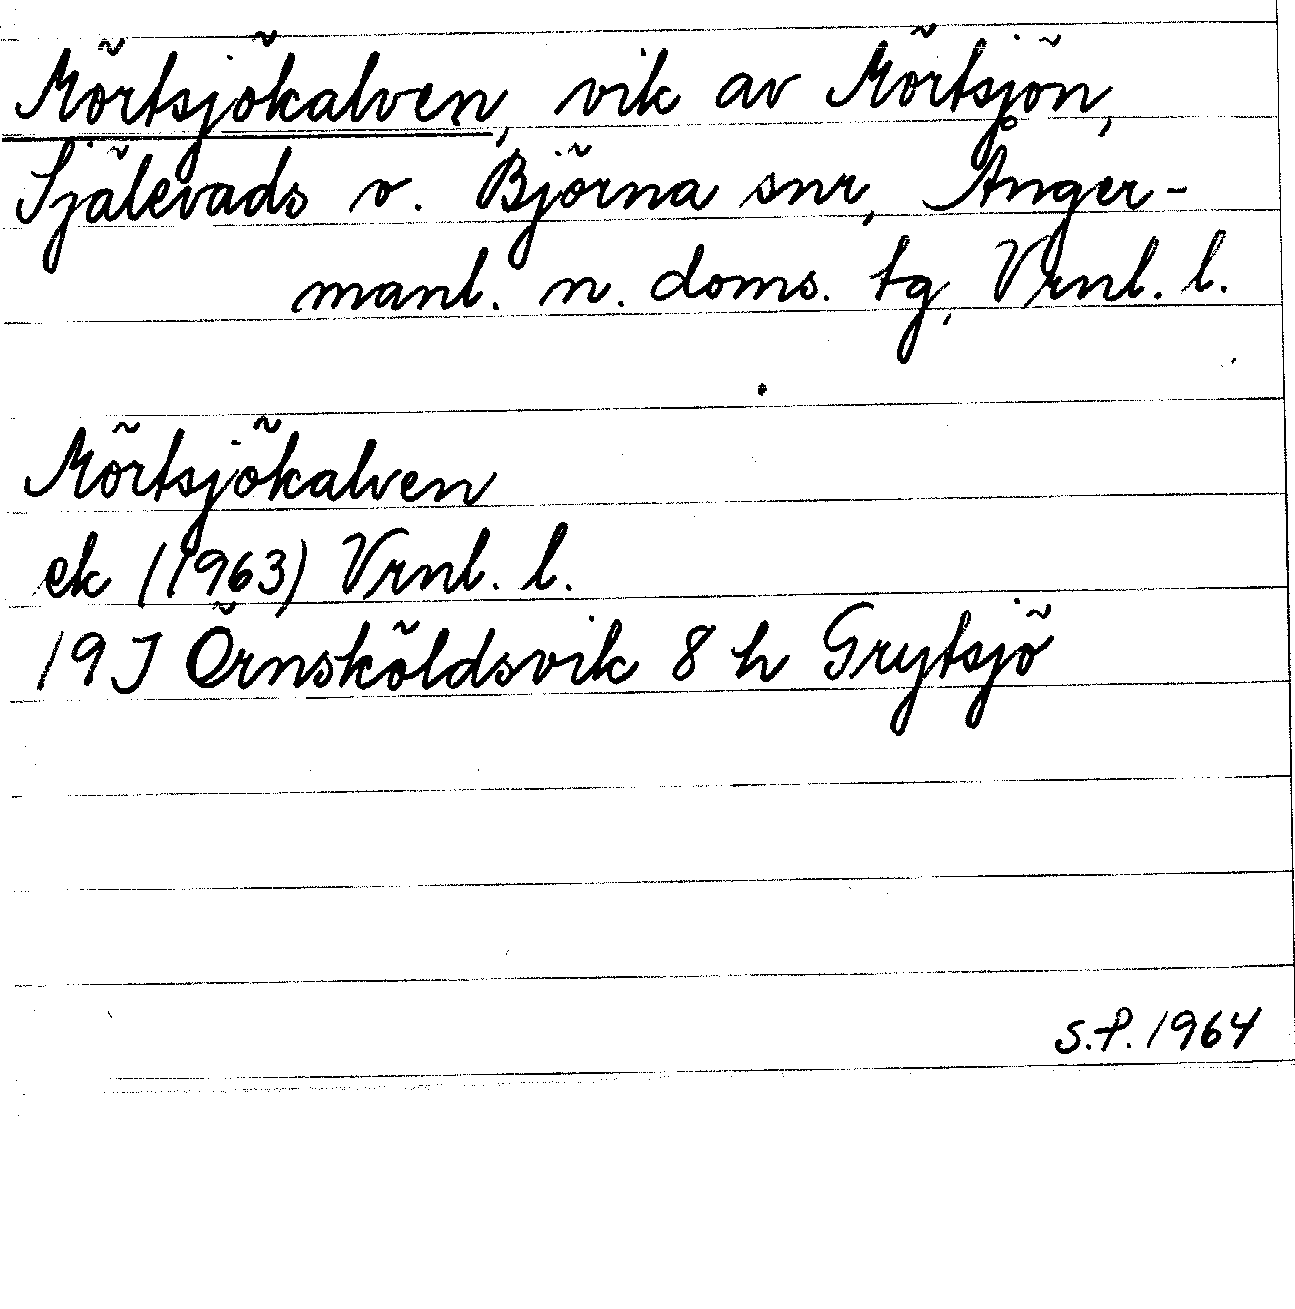 Mörtsjökalven, vik av Mörtsjön,
Själevads o. Björna snr, Ånger-
manl. n. doms. tg, Vrnl. l.
Mörtsjökalven
ek (1963) Vrnl. l.
19J Örnsköldsvik 8 h Grytsjö
S.P. 1964